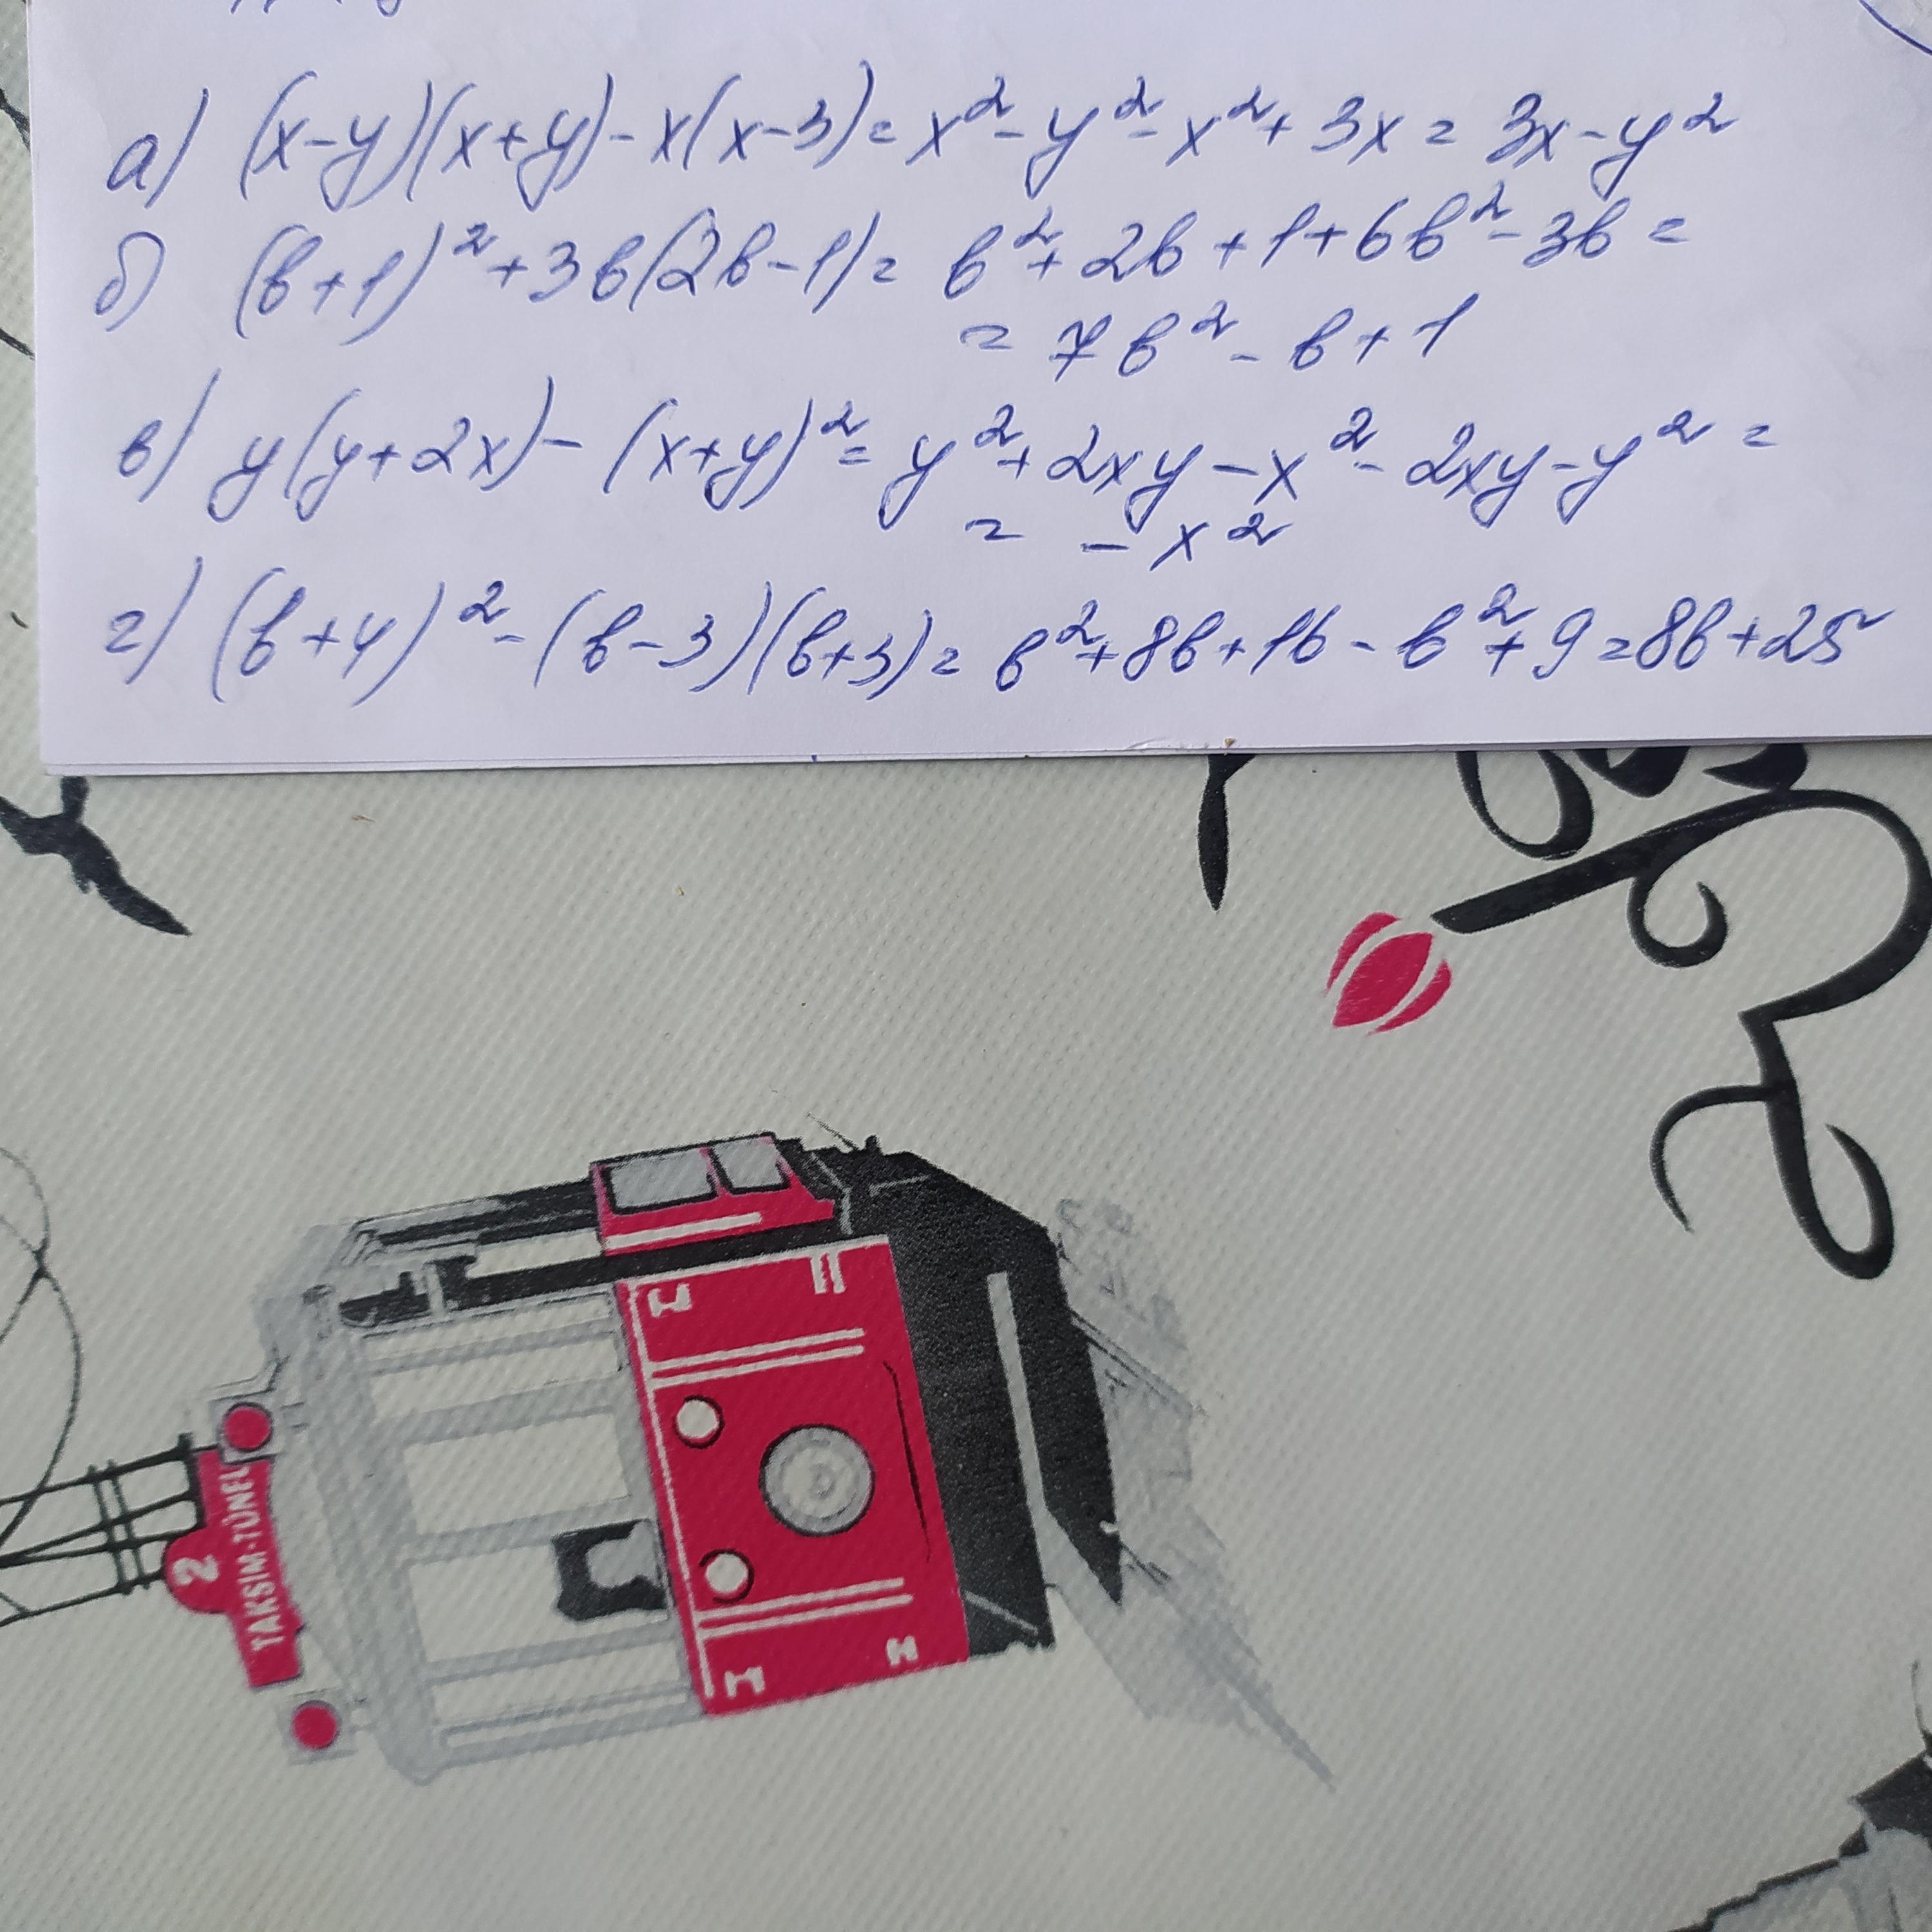 а) (x-y)(x+y)-x(x-3)=x²-y²-x²+3x=3x-y²
б) (в+1)²+3в(2в-1)=в²+2в+1+6в²-3в=
=7в²-в+1
в) y(y+2x)-(x+y)²=y²+2xy-x²-2xy-y²=
=-x²
г) (в+4)²-(в-3)(в+3)=в²+8в+16-в²+9=8в+25
2
TAKSIM-TÜNEL